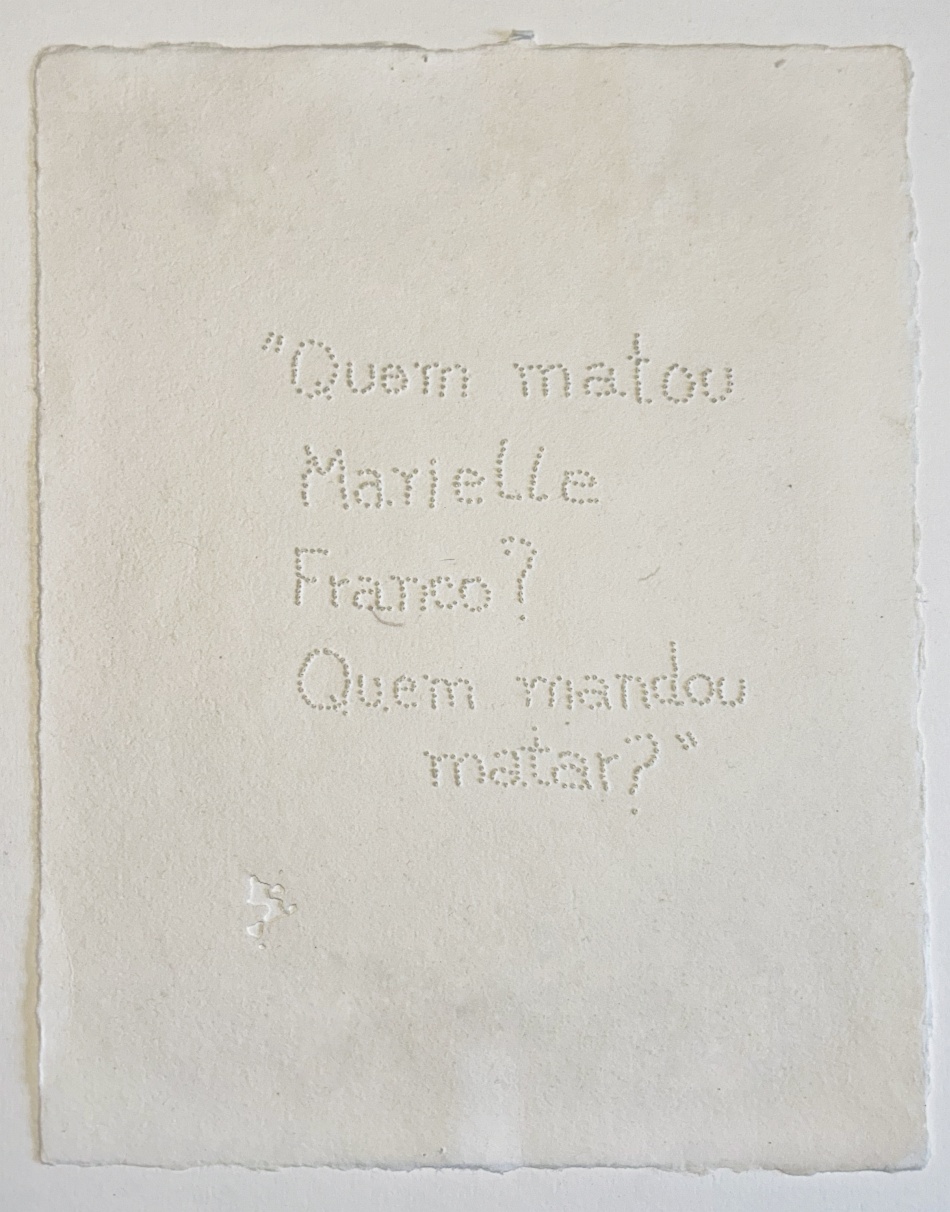 "Quem matou
Marielle
Franco?
Quem mandou
matar?"